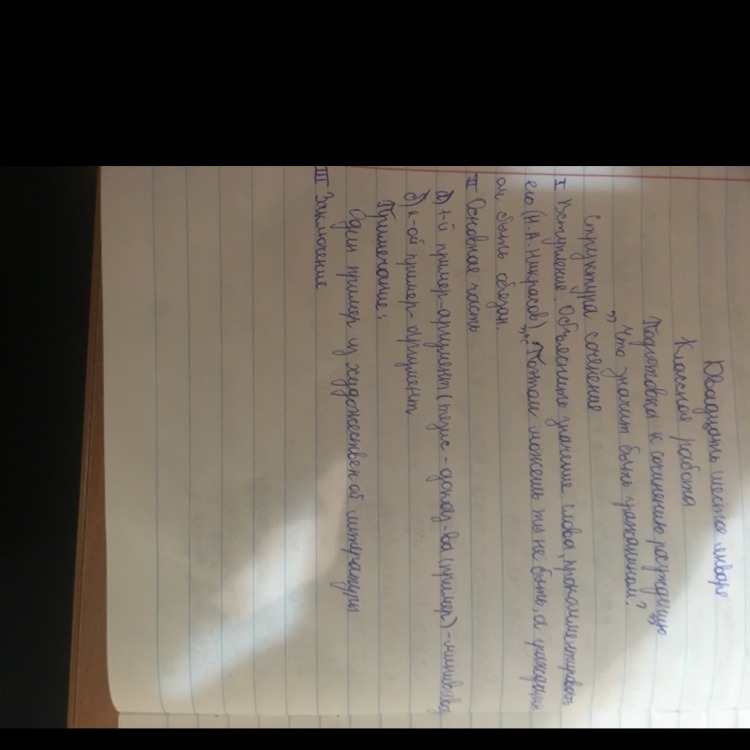 Двадцать шестое января
Классная работа
Подготовка к сочинению рассуждению
"Что значит быть гражданином?"
Структура сочинение
I Вступление. Объяснить значение слова, прокомментировать
его (Н.А.Никрасов) "Поэтом можешь ты не быть, а гражданин
ом быть обязан.
II Основная часть
а) 1-й пример-аргумент (тезис-доказ-ва (пример)-
б) 2-ой пример-аргумент
Примечание:
Один пример из художественой литературы
III Заключение